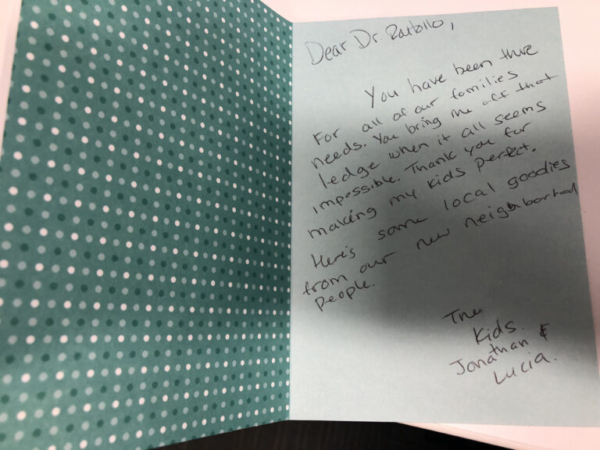 Dear Dr.
You have been there
For all of our families
needs. You bring me off that
ledge when it all seems
impossible. Thank you for
making my kids perfect.
Here's some local goodies
from our new neighborhood
people.
The
Kids.
Jonathan &
Lucia.